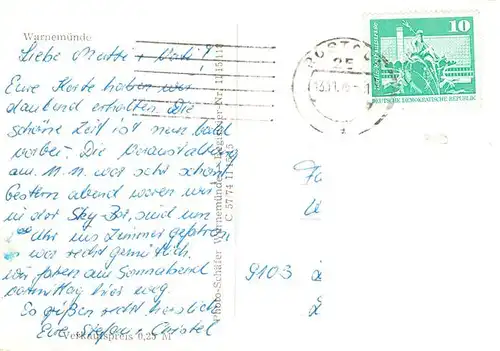 Warnemünde
Liebe Mutti + Vati!
Eure Karte haben wir
dankend erhalten. Die
schöne Zeit ist nun bald
vorbei. Die Veranstaltung
am M.N. war sehr schön
Gestern abend waren wir
in der Sky-Bar, sind um
Uhr ins Zimmer gefahren
war recht gemütlich.
Wir fahren am Sonnabend
vormittag hier weg.
So grüßen recht herzlich
Eure Stefan + Christel
Verkaufspreis 0,25 M
Photo-Schäfer Warnemünde
C 57/74 II 15/15
ROSTOCK
25
10
DEUTSCHE DEMOKRATISCHE REPUBLIK
9103